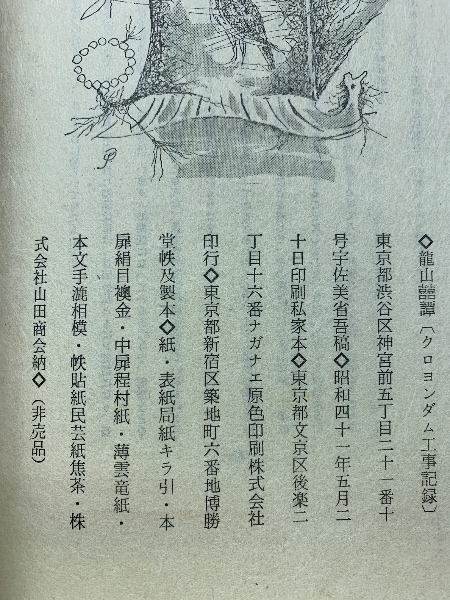 ◇龍山囍譚〔クロヨンダム工事記録〕
東京都渋谷区神宮前五丁目二十一番十
号宇佐美省吾稿◇昭和四十一年五月二
十日印刷私家本◇東京都文京区後楽二
丁目十六番ナガナエ原色印刷株式会社
印行◇東京都新宿区築地町六番地博勝
堂帙及製本◇紙・表紙局紙キラ引・本
扉絹目襖金・中扉程村紙・薄雲竜紙・
本文手漉相模・帙貼紙民芸紙焦茶・株
式会社山田商会納◇（非売品）